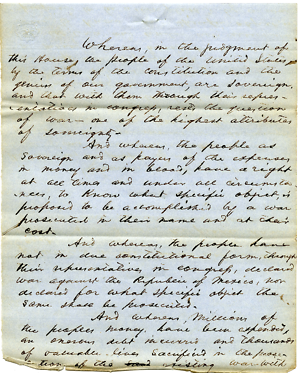 Whereas, in the judgment of
this House, the people of the United States
by the terms of the Constitution and the
genius of our government, are sovereign,
and that with them through their repres-
entatives in congress, rests the question
of war—one of the highest attributes
of sovereignty—
And whereas, the people as
Sovereign and as payers of the expenses
in money and in blood, have a right
at all times and under all circumstan-
ces, to know what specific object is
proposed to be accomplished by a war
prosecuted in their name and at their
cost
And whereas, the people have
not in due constitutional form, through
their representatives in congress, declared
war against the Republic of Mexico, nor
declared for what specific object the
same shall be prosecuted.
And whereas, Millions of
the peoples money have been expended,
an enormous debt incurred and thousands
of valuable lives sacrificed in the prosecu-
tion of the existing war with